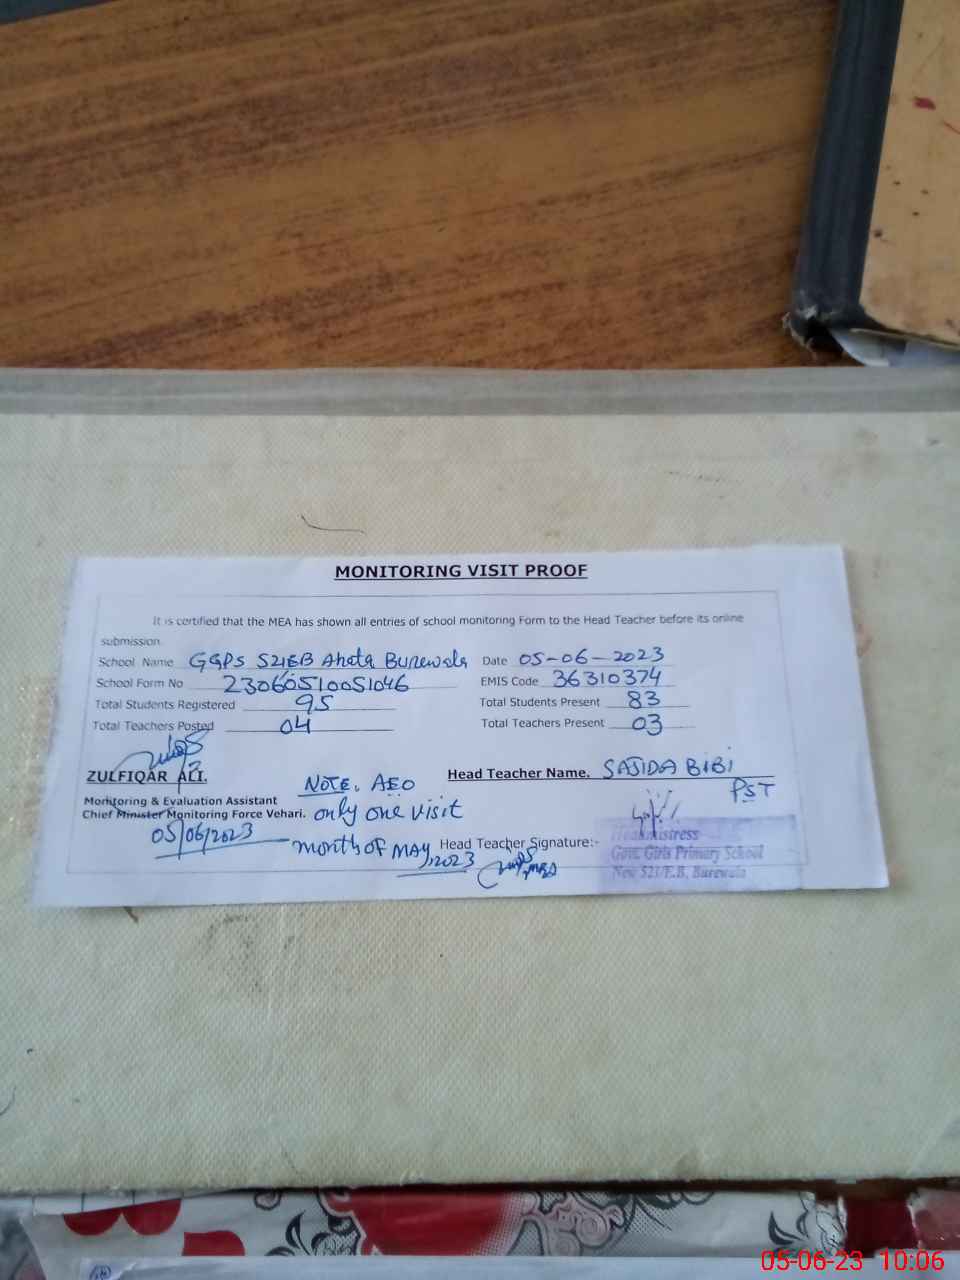 MONITORING VISIT PROOF
It is certified that the MEA has shown all entries of school monitoring Form to the Head Teacher before its online
submission.
School Name GGPS 521EB Ahata Burewala Date 05-06-2023
School Form No 23060510051046 EMIS Code 36310374
Total Students Registered 95 Total Students Present 83
Total Teachers Posted 04 Total Teachers Present 03
ZULFIQAR ALI. Head Teacher Name. SAJIDA BIBI
PST
NOTE. AEO
Monitoring & Evaluation Assistant
Chief Minister Monitoring Force Vehari. only one visit
05/06/2023 month OF MAY, 2023 Head Teacher Signature:-
Headmistress
Govt. Girls Primary School
New 521/E.B, Burewala
05-06-23 10:06